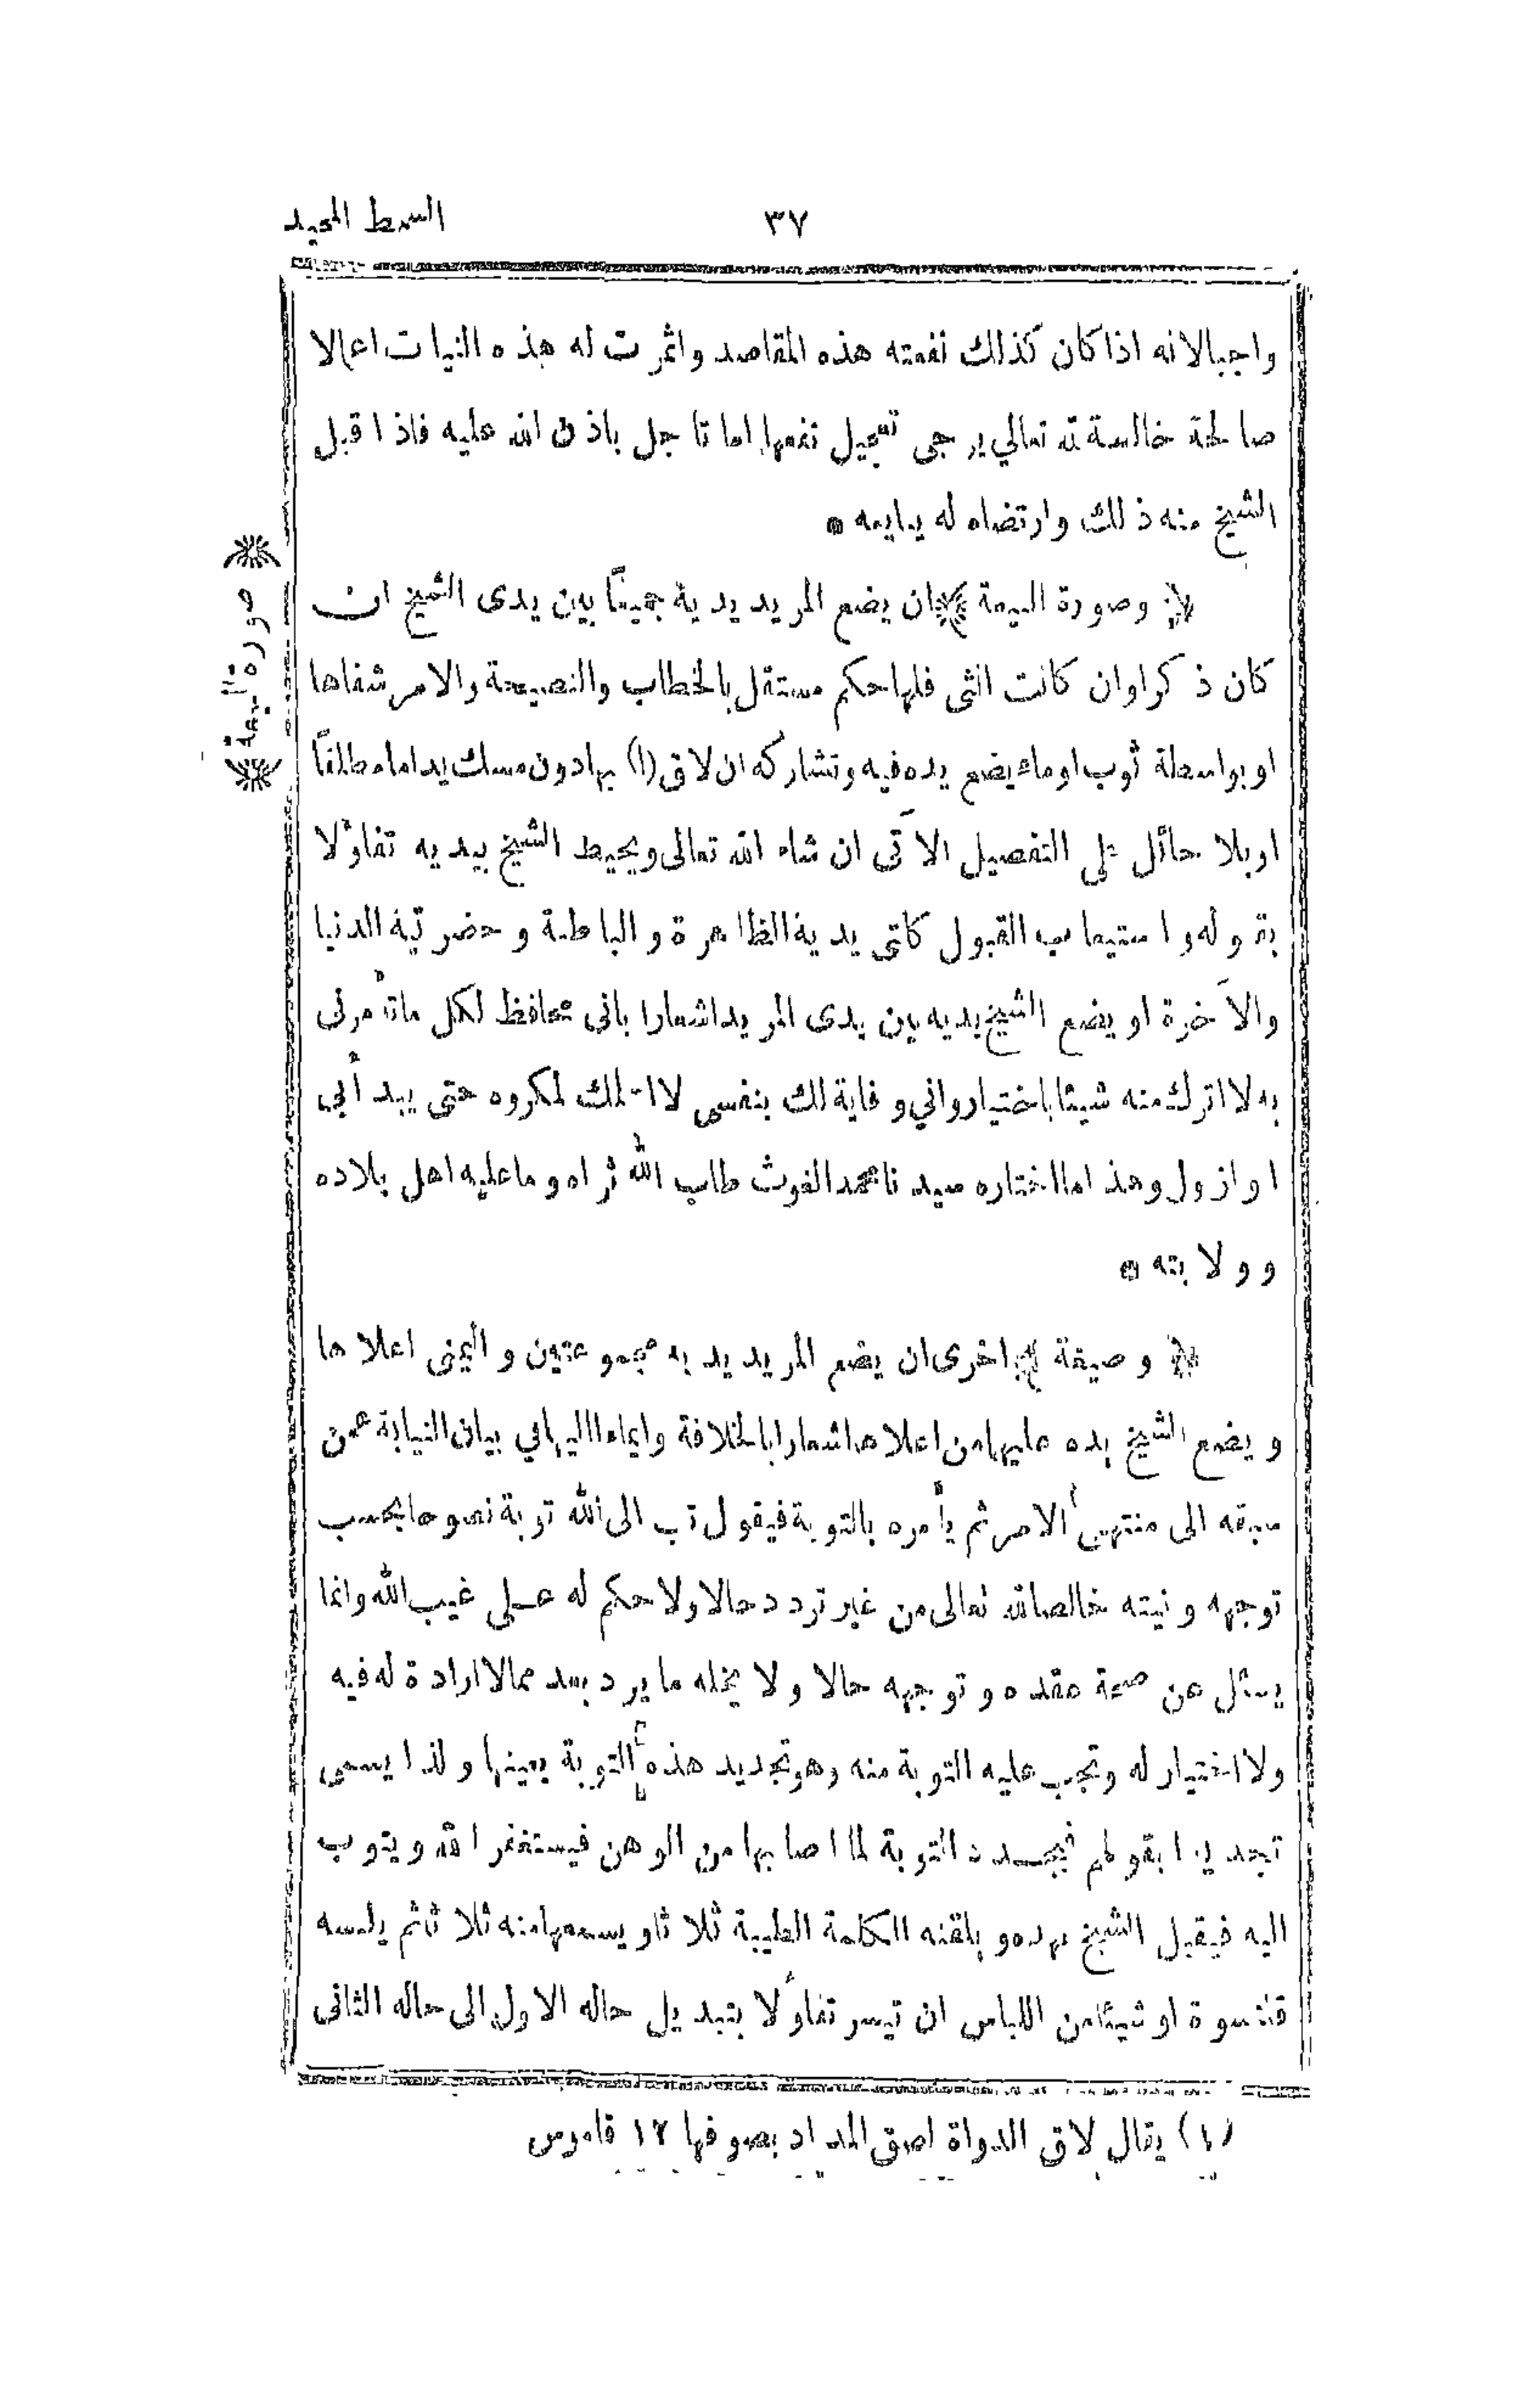 ٣٧ السمط المجيد
واجبالانه اذا كان كذلك نفعته هذه المقاصد واثمرت له هذه النيات اعمالا
صالحة خالصة لله تعالي يرجى تعجيل نفعها اما تاجل باذن الله عليه فاذا قبل
الشيخ منه ذلك وارتضاه له يبايعه *
﴿ وصورة البيعة ﴾ ان يضع المريد يديه جميعًا بين يدى الشيخ ان
صورة البيعة
كان ذكرا وان كانت انثى فلها حكم مستقل بالخطاب والنصيحة والامر شفاها
او بواسطة ثوب او ماء يضع يده فيه وتشاركه ان لاق (١) بها دون مسك يد اما مطلقًا
او بلا حائل على التفصيل الآتى ان شاء الله تعالى ويحيط الشيخ بيديه تفاؤلا
بقوله واستيعاب القبول كلتى يديه الظاهرة والباطنة وحضرتيه الدنيا
والآخرة او يضع الشيخ يديه بين يدى المريد اشعارا بانى محافظ لكل ما تأمرنى
به لا اترك منه شيئا باختيار واني وقاية لك بنفسى لا اسلمك لمكروه حتى يبدأ بي
او ازول وهذا ما اختاره سيدنا محمد الغوث طاب الله ثراه وما عليه اهل بلاده
وولايته *
﴿ وصيغة ﴾ اخرى ان يضع المريد يديه مجموعتين واليمنى اعلاها
ويضع الشيخ يده عليهما من اعلاها اشعارا بالخلافة وايماء اليها في بيان النيابة عمن
سبقه الى منتهى الامر ثم يأمره بالتوبة فيقول تب الى الله توبة نصوحا بحسب
توجهه ونيته خالصا لله تعالى من غير تردد حالا ولا حكم له على غيب الله وانما
يسئل عن صحة عقده وتوجهه حالا ولا يخله ما يرد بعد مما لا ارادة له فيه
ولا اختيار له وتجب عليه التوبة منه وهو تجديد هذه التوبة بعينها ولذا يسمى
تجديدا بقولهم فيجدد التوبة لما اصابها من الوهن فيستغفر الله ويتوب
اليه فيقبل الشيخ عهده ويلقنه الكلمة الطيبة ثلاثا ويسمعها منه ثلاثا ثم يلبسه
قلنسوة او شيئا من اللباس ان تيسر تفاؤلا بتبديل حاله الاول الى حاله الثانى
(١) يقال لاق الدواة لصق المداد بصوفها ١٢ قاموس